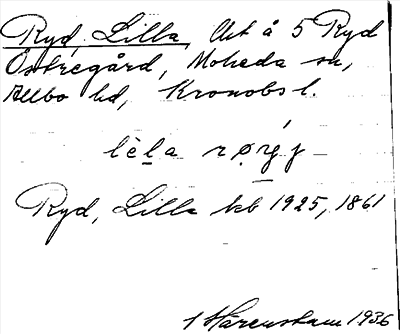 Ryd, Lilla, Ut å 5 Ryd
Östregård, Moheda sn,
Allbo hd, Kronobs l.
lèla
Ryd, Lilla kb 1925, 1861
1936